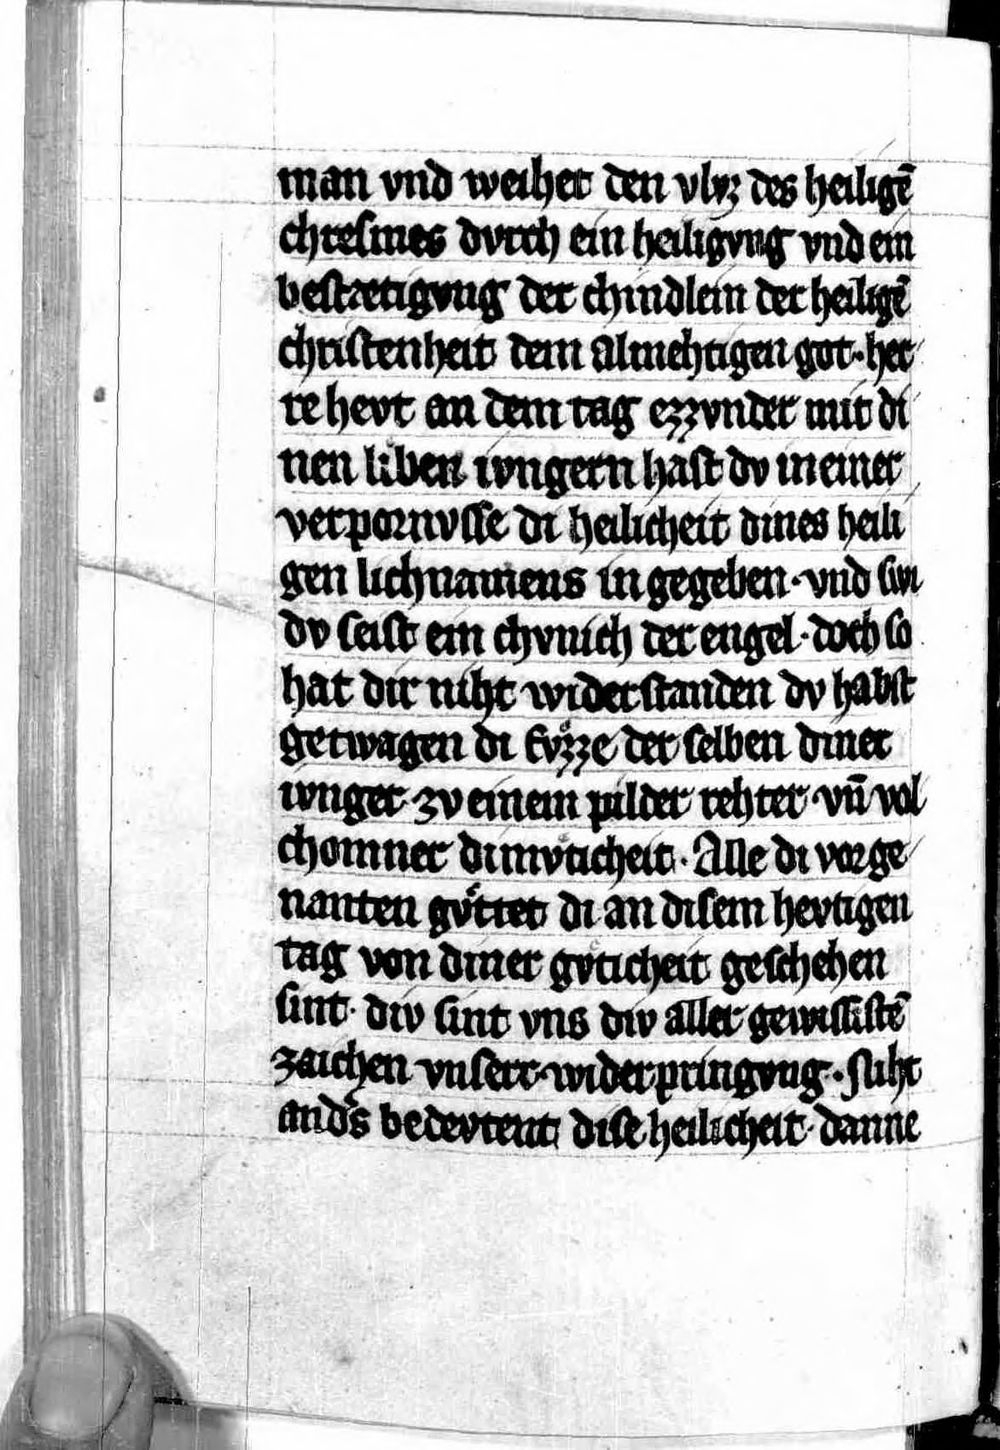 man vnd weihet den vlvz des heiligē
chresmes dvrch ein heiligvng vnd ein
bestætigvng der chindlein der heiligē
christenheit dem almehtigen got · her
re hevt an dem tag ezzvnder mit di
nen liben ivngern hast dv in einer
verpornvsse di heilicheit dines heili
gen lichnamens in gegeben · vnd swi
dv seist ein chvnich der engel · doch so
hat dir niht widerstanden dv habst
getwagen di fvͦzze der selben diner
ivnger zv einem pilder rehter vn̄ vol
chomner dimvͤticheit · Alle di vorge
nanten gvͤttet di an disem hevtigen
tag von diner gvͤticheit geschehen
sint · div sint vns div aller gewissistē
zaichen vnserr widerpringvng · Niht
anders bedevtent dise heilicheit danne